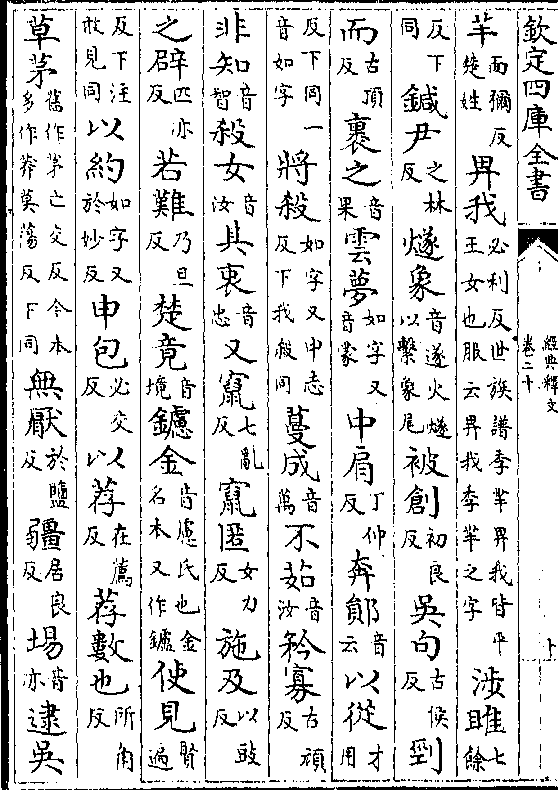 欽定四庫全書
經典釋文
卷二十
羋面彌反楚姓畀我必利反世族譜季羋畀我皆平王女也服云畀我季羋之字涉雎七餘
反下同鍼尹之林反燧象音遂火燧以繫象尾被創初良反吳句古侯反剄
而古頂反裹之音果雲夢如字又音蒙中肩丁仲反奔鄖音云以從才用
反下同一音如字將殺如字又申志反下我殺同蔓成音萬不茹音汝矜寡古頑反
非知音智殺女音汝其衷音忠又竄七亂反竄匿女力反施及以豉反
之辟匹亦反若難乃旦反楚竟音境鑢金音慮氏也金名本又作鑢使見賢遍
反下注敢見同以約如字又於妙反申包必交反以荐在薦反荐數也所角反
草茅舊作茅亡交反今本多作莽莫蕩反下同無厭於鹽反疆居良反埸音亦逮吳